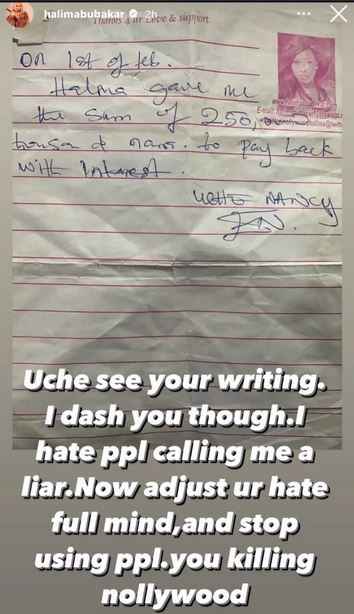 halimabubakar 2h
Thanks 4 ur Love & support
on 1st of feb.
Halima gave me
the sum of 250,
thousand naira. to pay back
with Interest.
UCHE NANCY
Uche see your writing.
I dash you though.I
hate ppl calling me a
liar.Now adjust ur hate
full mind,and stop
using ppl.you killing
nollywood